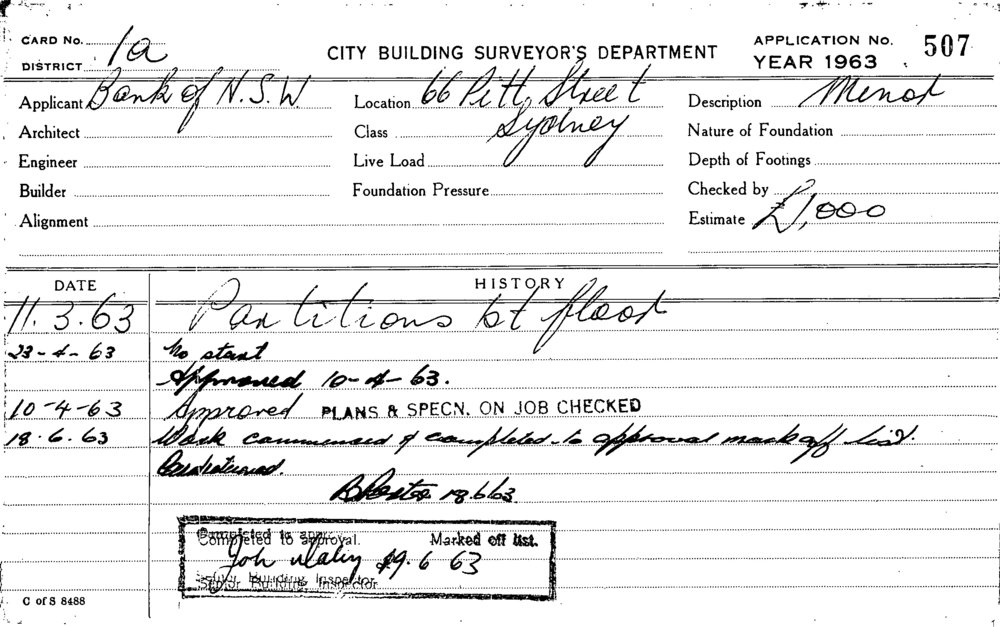 CARD No. 1a
DISTRICT
CITY BUILDING SURVEYOR'S DEPARTMENT
APPLICATION No. 507
YEAR 1963
Applicant Bank of N.S.W Location 66 Pitt Street Description Minor
Architect Class Sydney Nature of Foundation
Engineer Live Load Depth of Footings
Builder Foundation Pressure Checked by
Alignment Estimate £1,000
DATE HISTORY
11.3.63 Partitions bt floor
23-4-63 No start
Approved 10-4-63.
10-4-63 Approved PLANS & SPECN. ON JOB CHECKED
18.6.63 Work commenced & completed to approval mark off list.
18.6.63.
Completed to approval. Marked off list.
Joh 19.6 63
Senior Building Inspector
C of S 8488